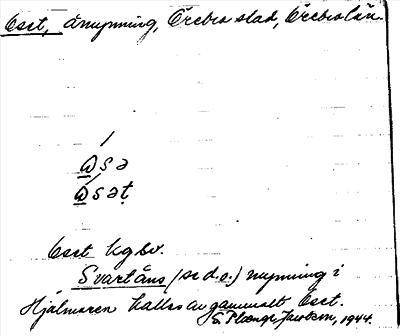 Oset, åmynning, Örebro stad, Örebro län.
ⱳsə
ⱳsəṭ
Oset kgsv.
Svartåns (se d.o.) mynning i
Hjälmaren kallas av gammalt Oset.
S. Jacobson, 1944.